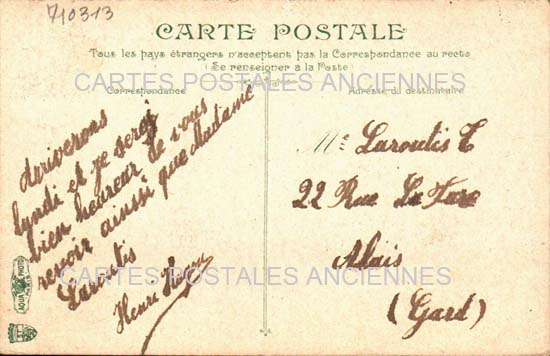 710313
CARTE POSTALE
Tous les pays étrangers n'acceptent pas la Correspondance au recto
(Se renseigner à la Poste)
CARTES POSTALES ANCIENNES
Correspondance
Adresse du destinataire
Arriverons
lyndi et je serai
bien heureux de vous
revoir ainsi que Madame
Laroutis
Henri
Mr Laroutis C
22 Rue La Fare
Alais
(Gard)
CARTES POSTALES ANCIENNES
AQUA PHOTO